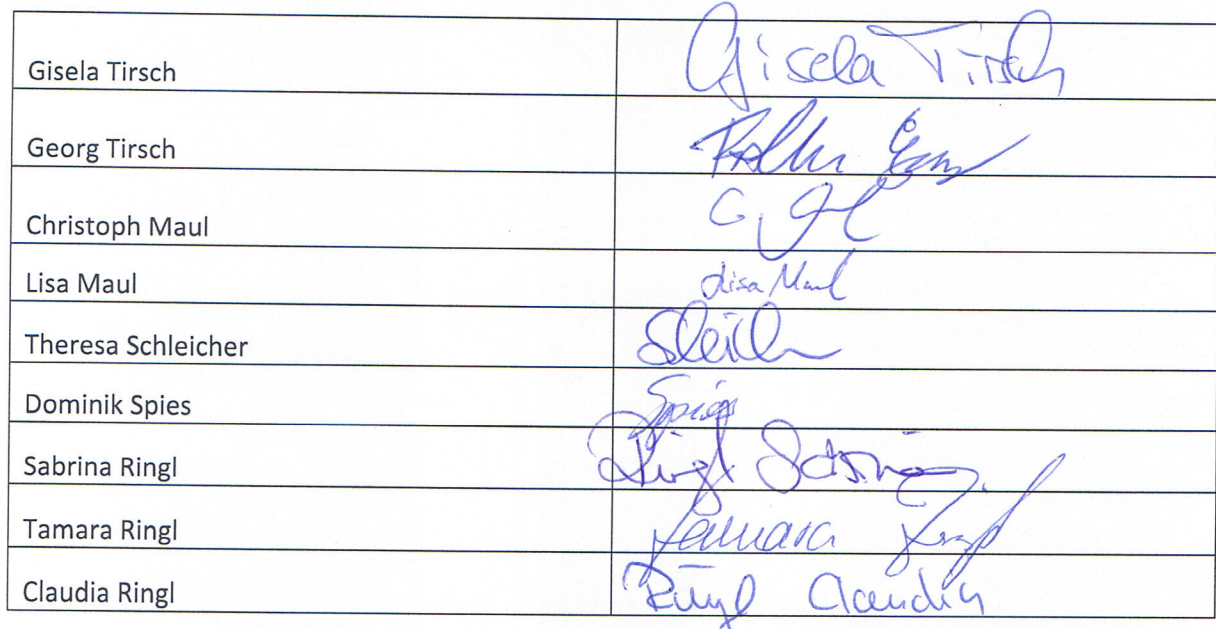 Gisela Tirsch Gisela Tirsch
Georg Tirsch
Christoph Maul C.
Lisa Maul Lisa Maul
Theresa Schleicher
Dominik Spies Spies
Sabrina Ringl Ringl Sabrina
Tamara Ringl Tamara Ringl
Claudia Ringl Ringl Claudia